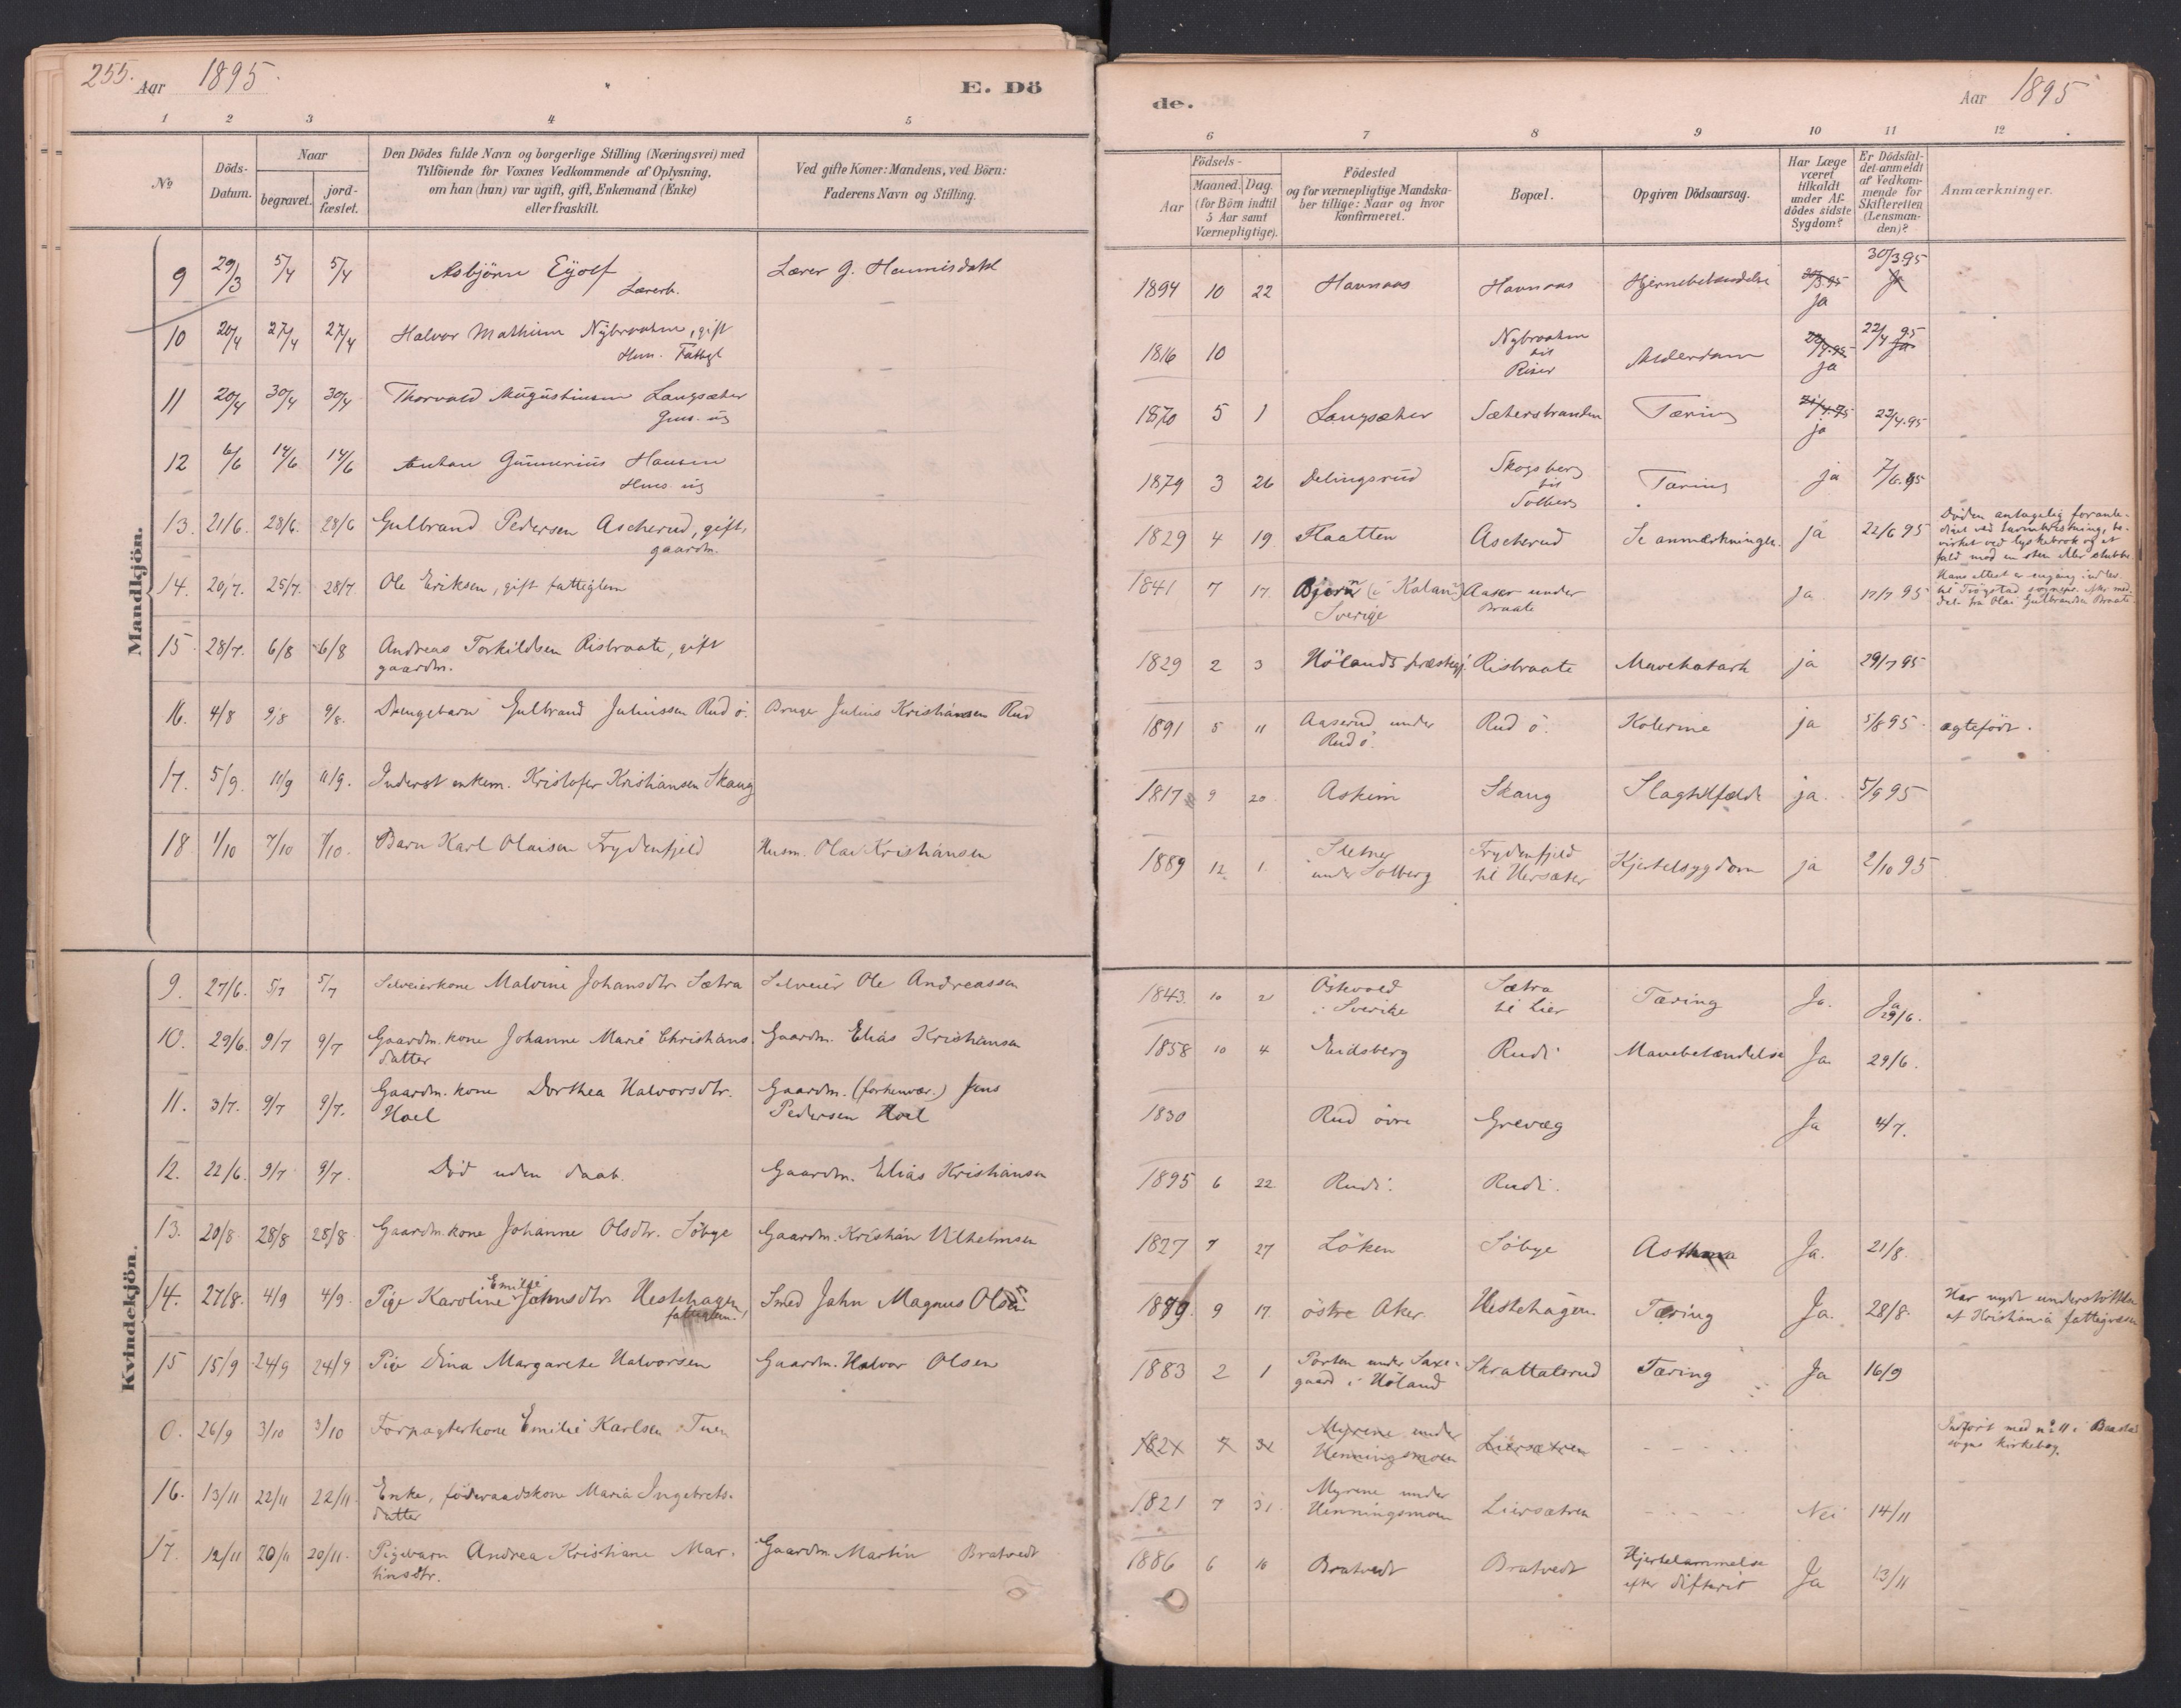 255. Aar 1895. E. Dö
1 2 3 4 5
No
Döds-
Datum.
Naar
begravet.
jord-
fæstet.
Den Dödes fulde Navn og borgerlige Stilling (Næringsvei) med
Tilföiende for Voxnes Vedkommende af Oplysning,
om han (hun) var ugift, gift, Enkemand (Enke)
eller fraskilt.
Ved gifte Koner: Mandens, ved Börn:
Faderens Navn og Stilling.
Mandkjön.
9 29/3 5/4 5/4 Asbjörn Eyolf Lærer G.
Lærerb.
10 20/4 27/4 27/4 Halvor Mathisen Nybraaten, gift
Hm. Fattigl
11 20/4 30/4 30/4 Thorvald Augustinsen Langsæter
Gms. ug
12 6/6 14/6 14/6 Anton Gunnerius Hansen
Hms ug
13. 21/6. 28/6. 28/6 Gulbrand Pedersen Ascherud, gift,
gaardm.
14. 20/7. 25/7. 28/7 Ole Eriksen, gift fattiglem
15 28/7. 6/8 6/8 Andreas Torkildsen Risbraate, gift
gaardm.
16. 4/8 9/8 9/8. Drengebarn Gulbrand Juliussen Rud ö. Bruger Julius Kristiansen Rud
17. 5/9. 11/9 11/9. Inderst enkem. Kristofer Kristiansen Skaug
18 1/10 7/10 7/10. Barn Karl Olaisen Frydenfjeld Husm. Olai Kristiansen
Kvindekjön.
9. 27/6. 5/7 5/7 Selveierkone Malvine Johansdtr. Sætra Selveier Ole Andreassen
10. 29/6. 9/7 9/7 Gaardm. kone Johanne Marie Christians- Gaardm. Elias Kristiansen
datter
11. 3/7. 9/7 9/7. Gaardm. kone Dorthea Halvorsdtr. Gaardm. (forhenvær.) Jens
Hoel Pedersen Hoel
12. 22/6. 9/7 9/7. Död uden daab. Gaardm. Elias Kristiansen
13. 20/8 28/8 28/8 Gaardm. kone Johanne Olsdtr. Söbye Gaardm. Kristian Vilhelmsen
14. 27/8. 4/9 4/9 Pige Karoline Emilie Johnsdtr. Hestehagen, Smed John Magnus Olsen
fattiglem.
15 15/9 24/9 24/9 Pige Dina Margarete Halvorsen Gaardm. Halvor Olsen
0. 26/9 3/10 3/10 Forpagterkone Emilie Karlsen Tuen
16. 13/11 22/11 22/11 Enke, föderaadskone Maria Ingebrets-
datter
17. 12/11 20/11 20/11 Pigebarn Andrea Kristiane Mar- Gaardm. Martin Bratvedt
tinsdtr.
de. Aar 1895
6 7 8 9 10 11 12
Födsels-
Aar
Maaned. Dag.
(for Börn indtil
5 Aar samt
Værnepligtige).
Födested
og for værnepligtige Mandska-
ber tillige: Naar og hvor
konfirmeret.
Bopæl.
Opgiven Dödsaarsag.
Har Læge
været
tilkaldt
under Af-
dödes sidste
Sygdom?
Er Dödsfal-
det anmeldt
af Vedkom-
mende for
Skifteretten
(Lensman-
den)?
Anmærkninger.
1894 10 22 Havnaas Havnaas Hjernebetændelse ja 30/3 95
1816 10 Nybraaten Alderdom ja 22/4 95
til
Riser
1870 5 1 Langsæter Sæterbraaten Tæring ja 22/4.95
1879 3 26 Delingsrud Skogsberg Tæring ja 7/6.95
til
Solberg
1829 4 19 Flaatten Ascherud Se anmærkningen. ja 22/6 95 Döden antagelig foranle-
diget ved tarmbristning, be-
virket ved lyskebrok og et
fald mod en sten eller stubbe.
1841 7 17. Björn Aaser under ja 17/7 95
Sverige Braate
1829 2 3 Hölands præstegj. Risbraate Mavekatarh ja 29/7 95
1891 5 11 Aaserud under Rud ö. Kolerine ja 5/8 95. ægteföd.
Rud ö.
1817 9 20 Askim Skaug Slagtilfælde ja. 5/9 95
1889 12. 1. Sletner Frydenfjeld Kjertelsygdom ja 2/10 95
under Solberg til Hersæter
1843. 10 21 Östvold Sætra Tæring Ja. Ja
i Sverike til Lier 29/6.
1858 10 4 Eidsberg Rudi Mavebetændelse Ja 29/6.
1830 Rud övre Grevæg Ja 4/7.
1895 6 22 Rudi. Rudi.
1827 7 27 Löken Söbye Asthma Ja. 21/8.
1879. 9 17. östre Aker. Hestehagen. Tæring Ja. 28/8. Har nydt understöttelse
af Kristiania fattigvæsen
1883 2 1 Porten under Saxe- Skrattalsrud Tæring Ja 16/9
gaard i Höland
1821 7 31 Myrene under Liersætren - - - - - Indfört med no 11 i Baastad
Henningsmoen sogns kirkebog.
1821 7 31. Myrene under Liersætren - - - - - Nei 14/11
Henningsmoen
1886 6 10 Bratvedt Bratvedt Hjertelammelse Ja 13/11
efter difterit